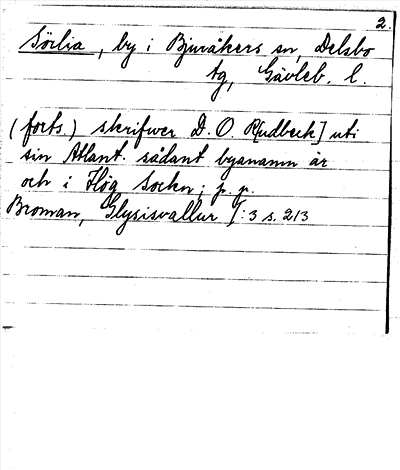 2.
Sörlia, by i Bjuråkers sn, Delsbo
tg, Gävleb. l.
(forts.) skrifwer D. O. R[udbeck] uti
sin Atlant. sådant byanamn är
och i Hög Sockn; p. p.
Broman, Glysisvallur I: 3 s. 213